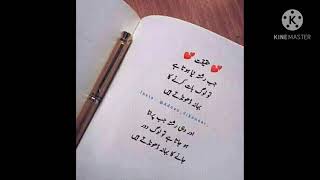 KINEMASTER
حقیقت
جب رشتہ نیا ہوتا ہے
تو لوگ بات کرنے کا
بہانہ ڈھونڈتے ہیں
اور وہی رشتہ جب پرانا
ہو جاتا ہے تو لوگ دور
جانے کا بہانہ ڈھونڈتے ہیں